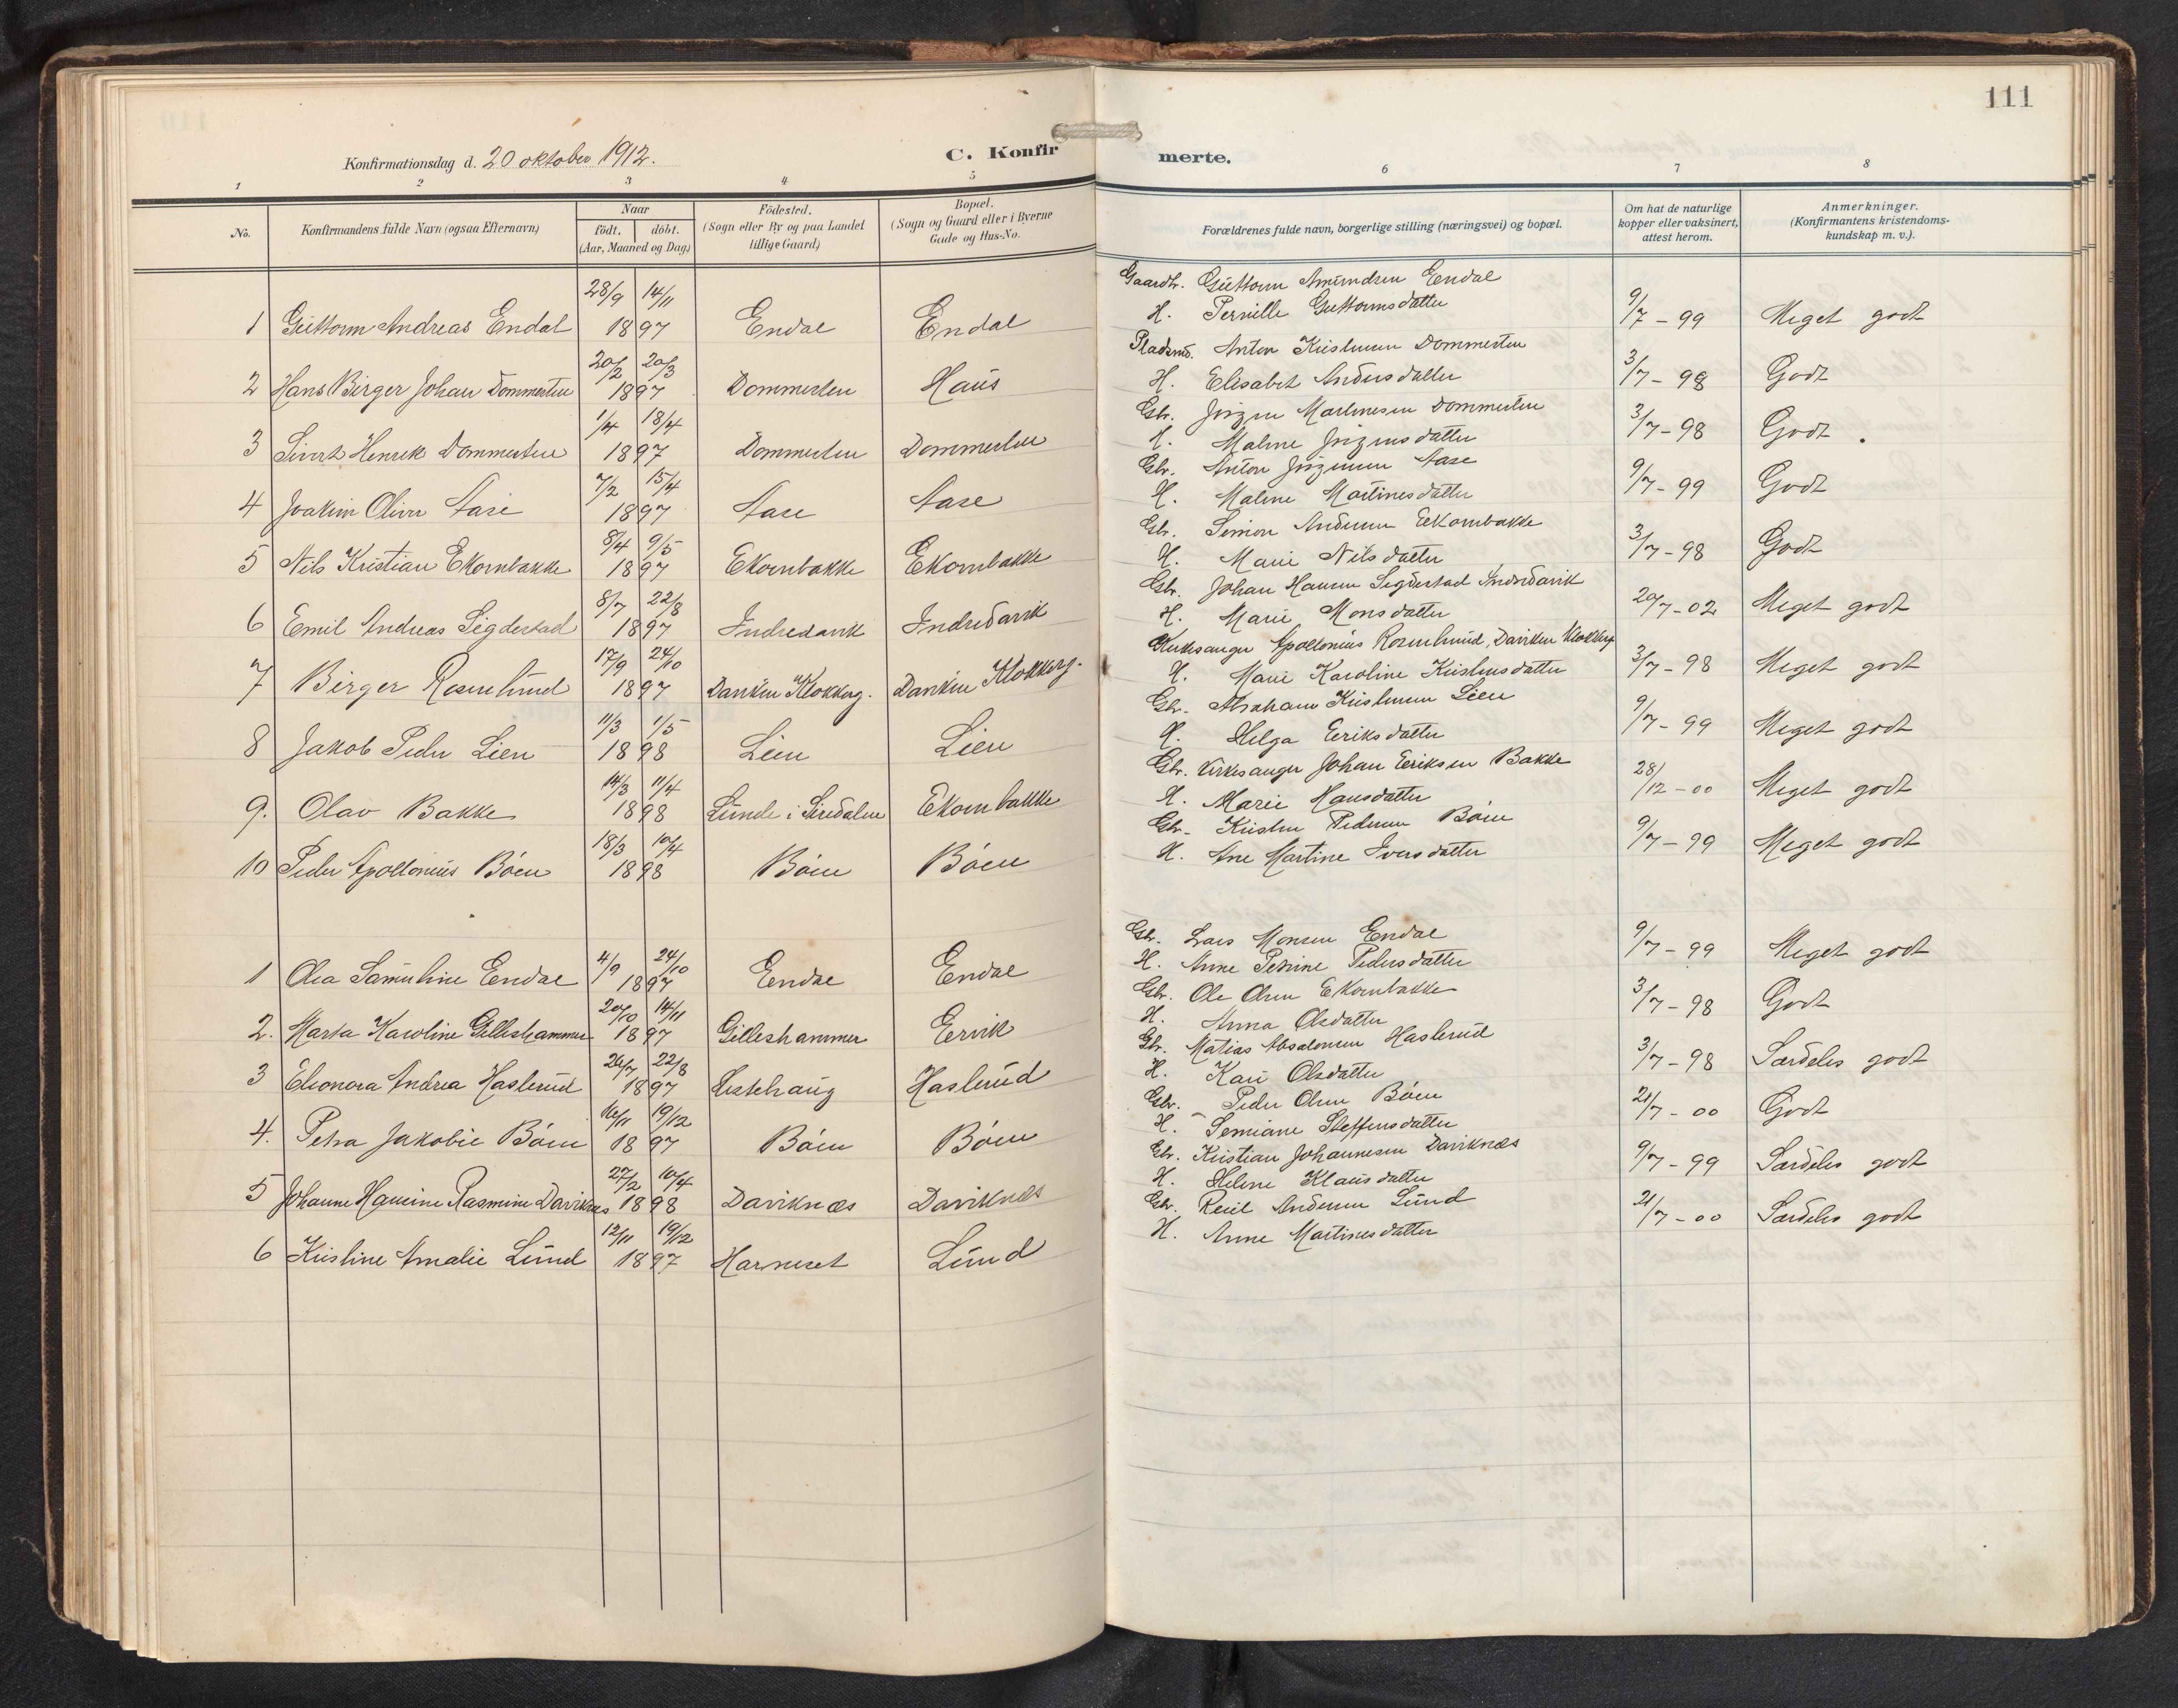 111
Konfirmationsdag d. 20 oktober 1912. C. Konfirmerte.
1 2 3 4 5 6 7 8
No. Konfirmandens fulde Navn (ogsaa Efternavn) Naar født. døbt. (Aar, Maaned og Dag) Födested. (Sogn eller By og paa Landet tillige Gaard) Bopæl. (Sogn og Gaard eller i Byerne Gade og Hus-No. Forældrenes fulde navn, borgerlige stilling (næringsvei) og bopæl. Om hat de naturlige kopper eller vaksinert, attest herom. Anmerkninger. (Konfirmantens kristendoms-kundskap m. v.).
28/9 14/11 Gaardbr. Guttorm Amundsen Endal
1 Guttorm Andreas Endal 1897 Endal Endal H. Pernille Guttormsdatter 9/7 - 99 Meget godt
20/2 20/3 Pladsmd. Anton Kristensen Dommesten
2 Hans Birger Johan Dommesten 1897 Dommesten Haus H. Elisabet Andersdatter 3/7 - 98 Godt
1/4 18/4 Gbr. Jörgen Martinesen Dommesten
3 Sivert Henrik Dommesten 1897 Dommesten Dommesten H. Maline Jörgensdatter 3/7 - 98 Godt.
7/2 15/4 Gbr. Anton Jörgensen Aase
4 Joakim Oliver Aase 1897 Aase Aase H. Maline Martinesdatter 9/7 - 99 Godt
8/4 9/5 Gbr. Simon Andersen Eekornbakke
5 Nils Kristian Ekornbakke 1897 Ekornbakke Ekornbakke H. Marie Nilsdatter 3/7 - 98 Godt
8/7 22/8 Gbr. Johan Hansen Sigdestad Indredavik
6 Emil Andreas Sigdestad 1897 Indredavik Indredavik H. Marie Monsdatter 20/7 - 02 Meget godt
17/9 24/10 Kirkesanger Apollonius Rosenlund, Daviken Klokkerg
7 Birger Rosenlund 1897 Daviken Klokkerg. Daviken Klokkerg. H. Marie Karoline Kristensdatter 3/7 - 98 Meget godt
11/3 1/5 Gbr. Abraham Kristensen Lien
8 Jakob Peder Lien 1898 Lien Lien H. Helga Eeriksdatter 9/7 - 99 Meget godt
14/3 11/4 Gbr. Kirkesanger Johan Eeriksen Bakke
9. Olav Bakke 1898 Lunde i Siredalen Ekornbakke H. Marie Hansdatter 28/12 - 00 Meget godt
18/3 10/4 Gbr. Kristen Pedersen Böen
10 Peder Apollonius Böen 1898 Böen Böen H. Ane Martine Iversdatter 9/7 - 99 Meget godt
4/9 24/10 Gbr. Lars Monsen Endal
1 Olea Samuline Eendal 1897 Eendal Eendal H. Anne Petrine Pedersdatter 9/7 - 99 Meget godt
20/10 14/11 Gbr. Ole Olsen Ekornbakke
2. Marta Karoline Gilleshammer 1897 Gilleshammer Eervik H. Anna Olsdatter 3/7 - 98 Godt
24/7 22/8 Gbr. Matias Absalonsen Haslerud
3 Eleonora Andrea Haslerud 1897 Listehaug Haslerud H. Kari Olsdatter 3/7 - 98 Særdeles godt
16/11 19/12 Gbr. Peder Olsen Böen
4. Petra Jakobie Böen 1897 Böen Böen H. Semiane Steffensdatter 21/7 - 00 Godt
27/2 10/4 Gbr. Kristian Johannesen Daviknæs
5 Johanne Hansine Rasmine Daviknæs 1898 Daviknæs Daviknæs H. Helene Klausdatter 9/7 - 99 Særdeles godt
12/11 19/12 Gbr. Andersen Lund
6 Kristine Amalie Lund 1897 Harneset Lund H. Anne Martinesdatter 21/7 - 00 Særdeles godt